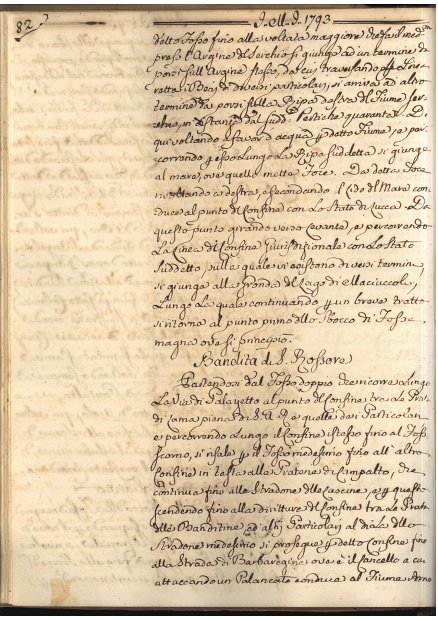 82
J. M. J. 1793
detto Fosso fino alla voltata maggiore
presso l'Argine di Serchio si giunge ad un termine da
porsi sull'Argine stesso, da cui traversando
i Beni di diversi particolari, si arriva ad altro
termine da porsi sulla Ripa destra del Fiume Ser-
chio, in distanza dal sudd: Pertiche quaranta. Di
qui voltando a favor d'acqua p detto Fiume, e per-
correndo p esso Lungo La Ripa suddetta si giunge
al mare, ove quello mette Foce. Da detta Foce
rivoltando a destra, e secondando il Lido del Mare con-
duce al punto di Confine con Lo Stato di Lucca. Da
questo punto girando verso Levante, e percorrendo
La Linea di Confine Giurisdizionale con Lo Stato
suddetto, sulla quale vi esistono diversi termini,
si giunge alla gronda del Lago di Maciuccoli,
Lungo La quale continuando p un breve tratto
si ritorna al punto primo dello Sbocco di Fossa
magna ove si principiò.
Bandita di S. Rossore
Partendosi dal Fosso doppio che ricorre Lungo
La Via di Palazzetto al punto di Confine tra Le Prata
di S. A. R. e quelle dei Particolari
e percorrendo Lungo il Confine istesso fino al Foss
si risale p il Fosso medesimo fino all'altro
Confine in testa alle Praterie di Campalto, che
continua fino allo Stradone delle Cascine, e p questo
scendendo fino alla dirittura del Confine tra Le Prata
delle Banditine ed altri Particolari al di là dello
Stradone medesimo si prosegue p detto Confine fino
alla Strada di Barbaregina ove è il Cancello a cui
attaccando un Palancato conduce al Fiume Arno